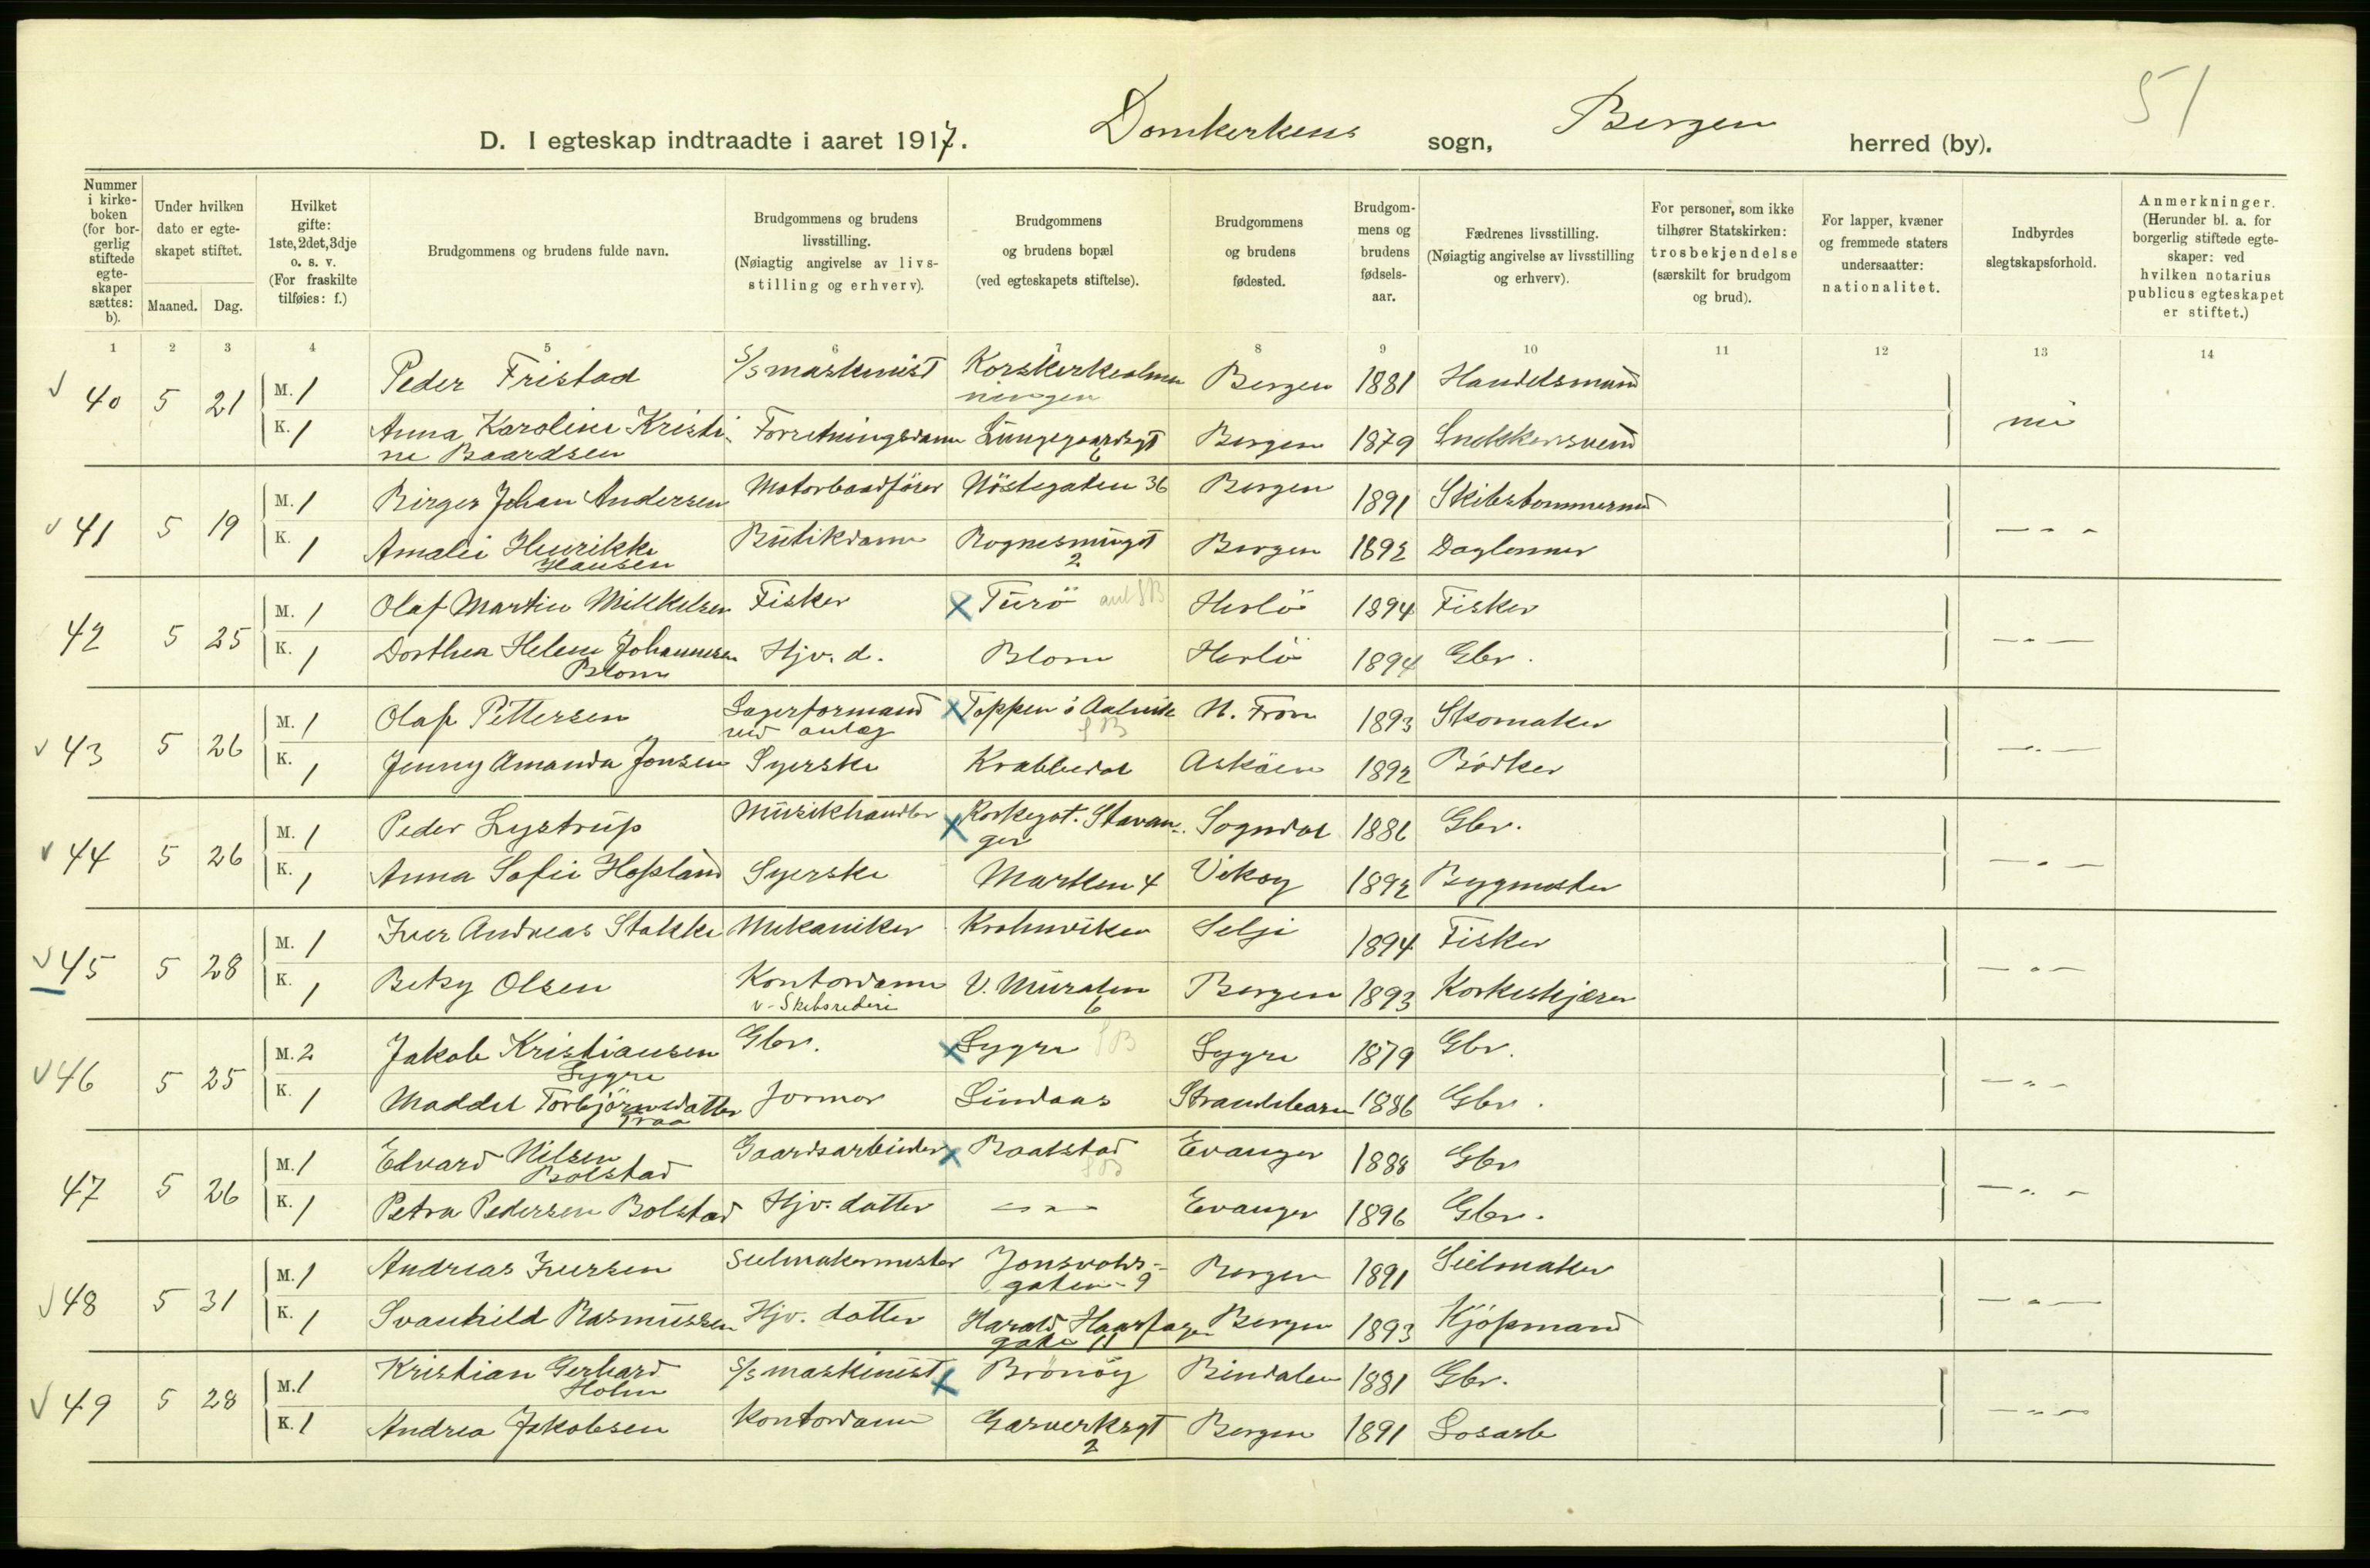 51
D. I egteskap indtraadte i aaret 1917. Domkerkens sogn, Bergen herred (by).
Nummer i kirke-boken (for bor-gerlig stiftede egte-skaper sættes: b).
Under hvilken dato er egte-skapet stiftet.
Maaned. Dag.
Hvilket gifte: 1ste, 2det, 3dje o. s. v. (For fraskilte tilføies: f.)
Brudgommens og brudens fulde navn.
Brudgommens og brudens livsstilling. (Nøiagtig angivelse av livs-stilling og erhverv).
Brudgommens og brudens bopæl (ved egteskapets stiftelse).
Brudgommens og brudens fødested.
Brudgom-mens og brudens fødsels-aar.
Fædrenes livsstilling. (Nøiagtig angivelse av livsstilling og erhverv).
For personer, som ikke tilhører Statskirken: trosbekjendelse (særskilt for brudgom og brud).
For lapper, kvæner og fremmede staters undersaatter: nationalitet.
Indbyrdes slegtskapsforhold.
Anmerkninger. (Herunder bl. a. for borgerlig stiftede egte-skaper: ved hvilken notarius publicus egteskapet er stiftet.)
1 2 3 4 5 6 7 8 9 10 11 12 13 14
40 5 21 M. 1 Peder Fristad S/S maskinist Korskerkealmen ningen Bergen 1881 Handelsmand
K. 1 Anna Karoline Kristi-ne Baardsen Forretningsdame Lungegaardsgt 6 Bergen 1879 Snekkersvend nei
41 5 19 M. 1 Birger Johan Andersen Motorbaadfører Nöstegaten 36 Bergen 1891 Skibstømmermd
K. 1 Amalie Henrikke Hansen Butikdame Rognesmuget 2 Bergen 1892 Daglønner — " —
42 5 25 M. 1 Olaf Martin Mikkelsen Fisker x Turö Herlö 1894 Fisker
K. 1 Dorthea Helene Johannesen Blom Hjv. d. Blom Herlö 1894 Gbr. — " —
43 5 26 M. 1 Olaf Pettersen Lagerformand ved anlæg x Toppen i Aalvik SB N. Fron 1893 Skomaker
K. 1 Jenny Amanda Jonsen Syerske Krabbedal Asköen 1892 Bødker — " —
44 5 26 M. 1 Peder Lystrup Musikhandler x Kerkegt. Stavan-ger Sogndal 1886 Gbr.
K. 1 Anna Sofie Hopland Syerske Marken 4 Vikøy 1892 Bygmester — " —
45 5 28 M. 1 Iver Andreas Stokke Mekaniker Krohnviken Selje 1894 Fisker
K. 1 Betsy Olsen Kontordame v. Skibsrederi V. Muralm 6 Bergen 1893 Korkeskjærer — " —
46 5 25 M. 2 Jakob Kristiansen Sygre Gbr. x Sygre SB Sygre 1879 Gbr.
K. 1 Maddel Torbjörnsdatter Traa Jormor Lindaas Strandebarm 1886 Gbr. — " —
47 5 26 M. 1 Edvard Nilsen Bolstad Gaardsarbeider x Baalstad SB Evanger 1888 Gbr
K. 1 Petra Pedersen Bolstad Hjv. datter — " — Evanger 1896 Gbr. — " —
48 5 31 M. 1 Andreas Iversen Seilmakermester Jonsvolds-gaten 9 Bergen 1891 Seilmaker
K. 1 Svanhild Rasmussen Hjv. datter Harald Haarfagers gate 11 Bergen 1893 Kjøpmand — " —
49 5 28 M. 1 Kristian Gerhard Holm S/S maskinist x Brönöy Bindalen 1881 Gbr.
K. 1 Andrea Jakobsen Kontordame Gasverksgt 2 Bergen 1891 Løsarb — " —